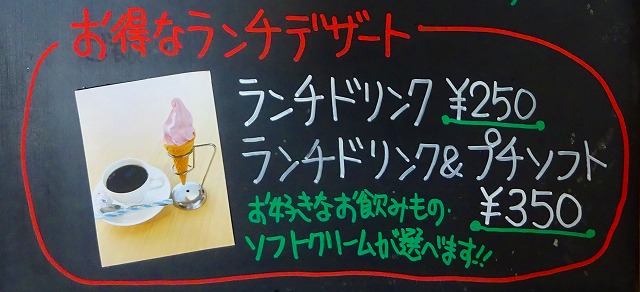 お得なランチデザート
ランチドリンク ¥250
ランチドリンク&プチソフト
¥350
お好きなお飲みもの・
ソフトクリームが選べます!!